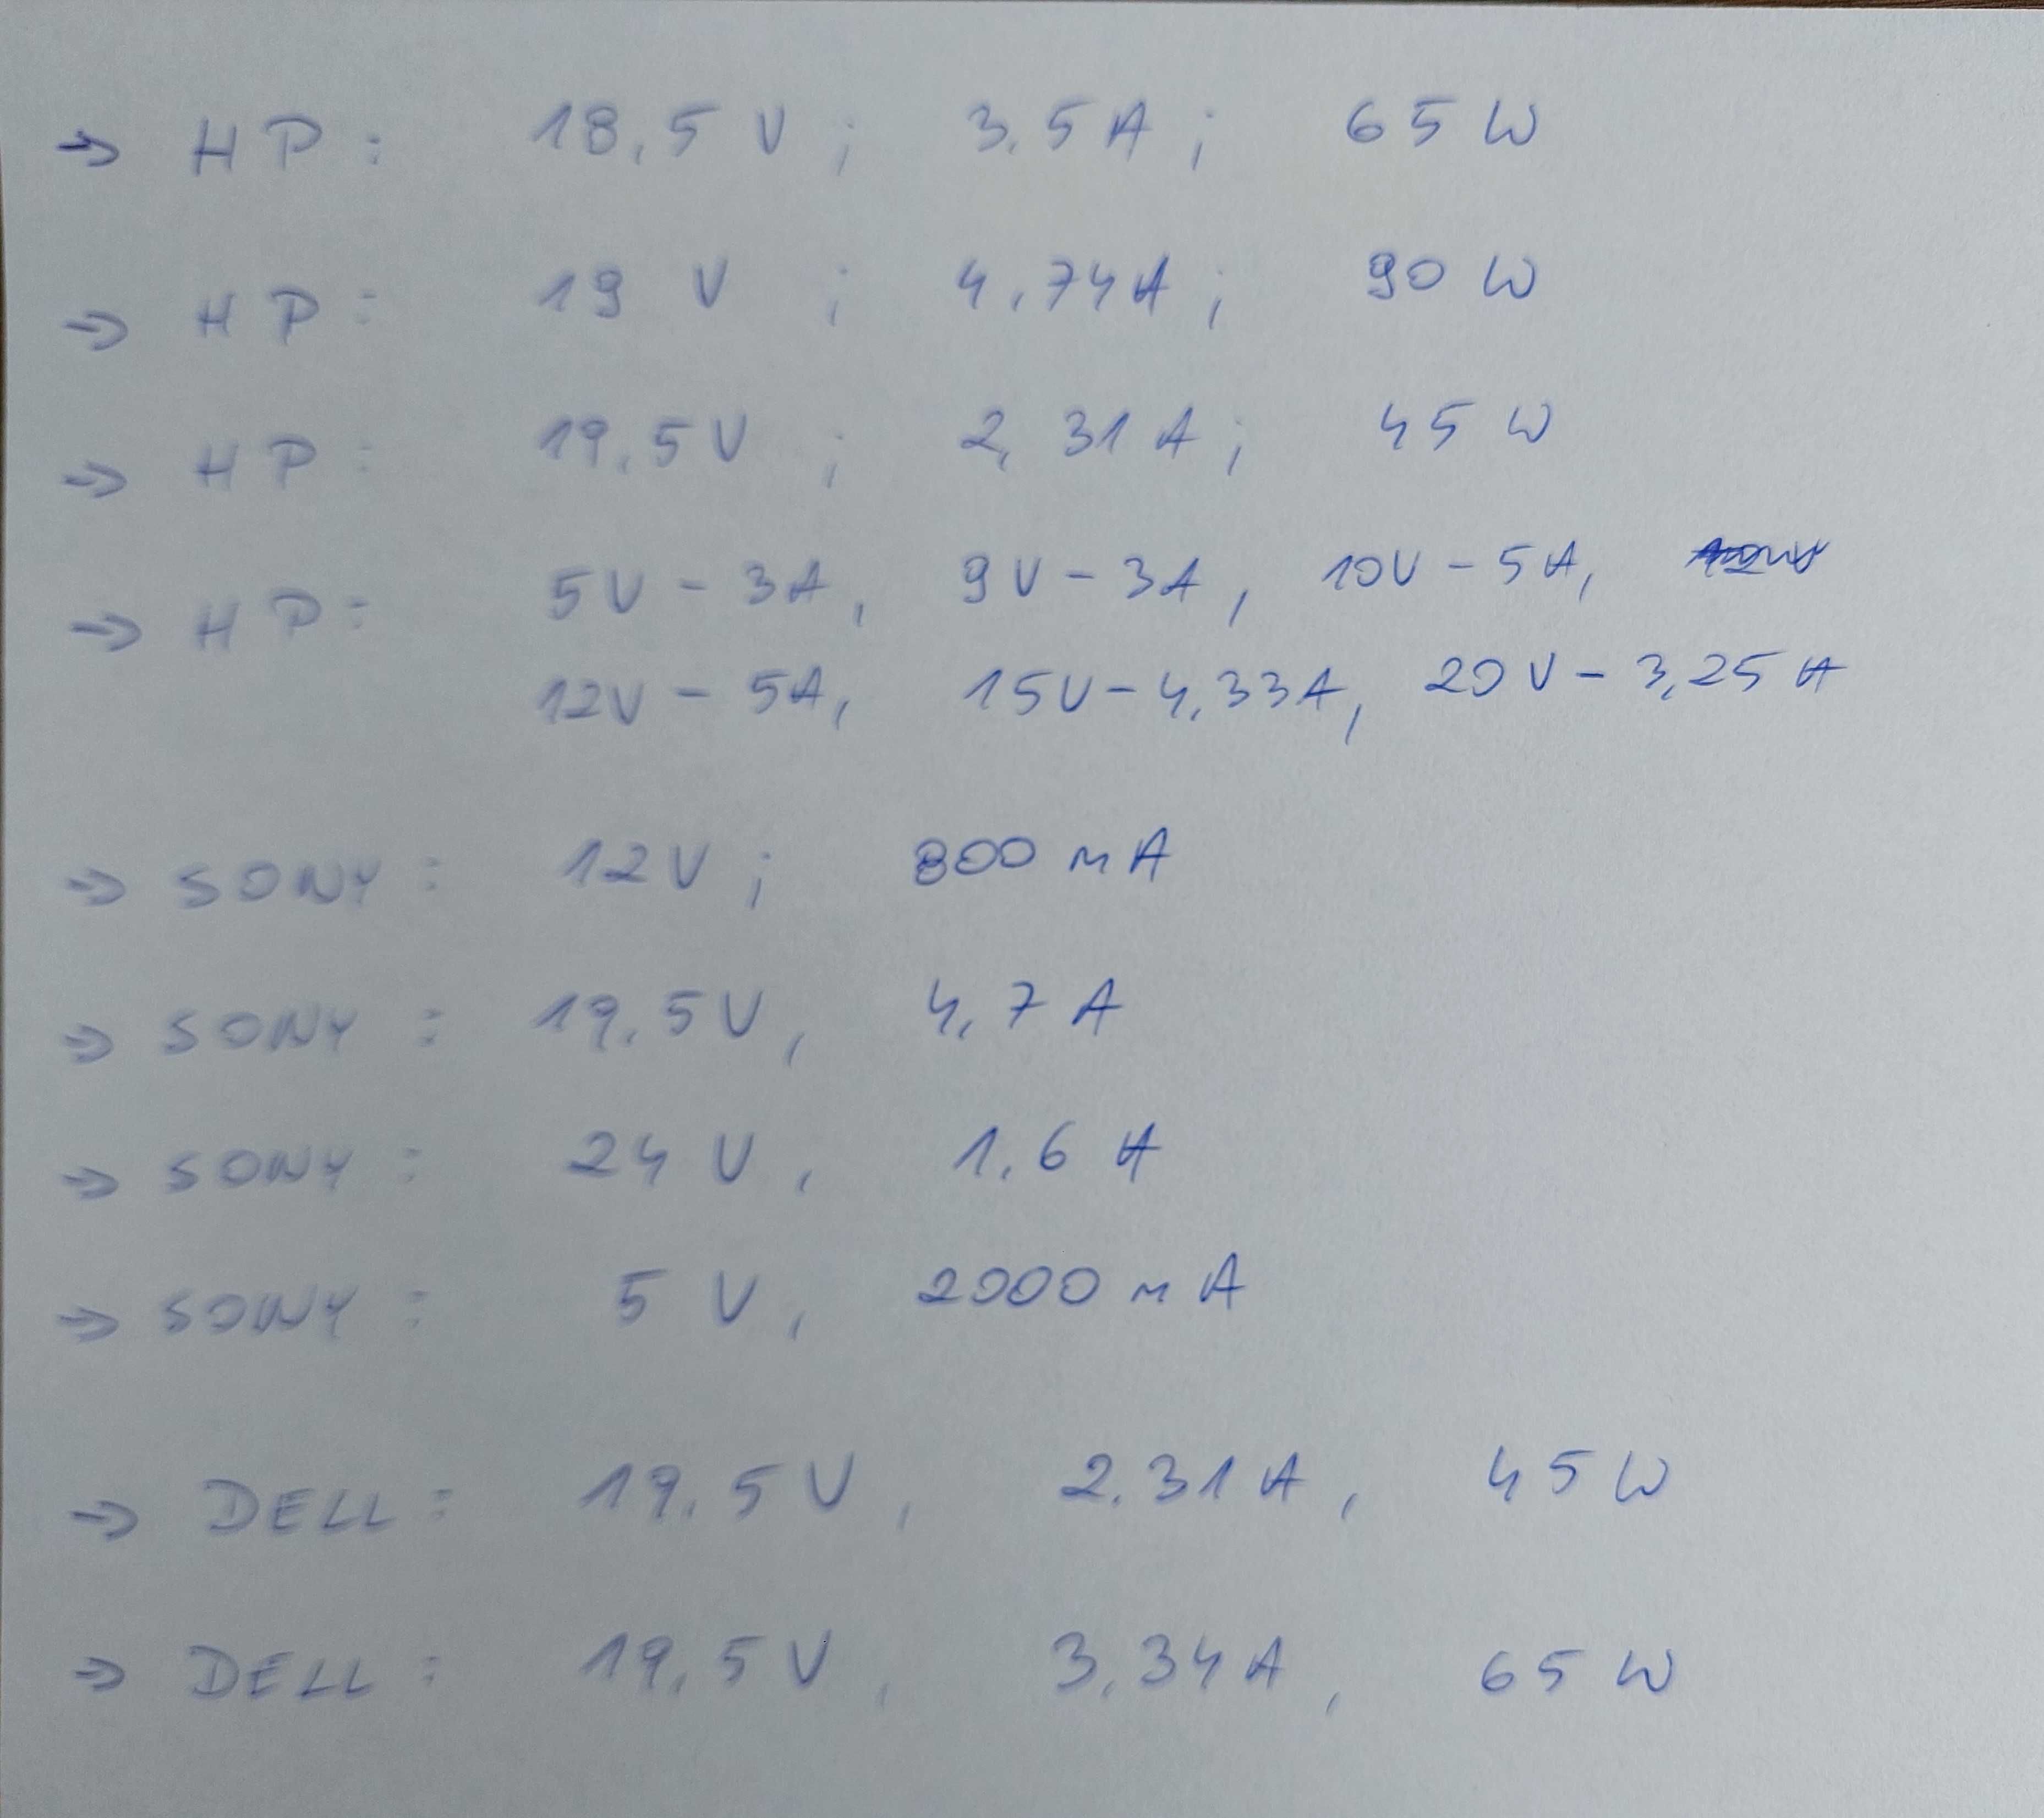 → HP: 18,5 V; 3,5 A; 65 W
→ HP: 19 V; 4,74 A; 90 W
→ HP: 19,5 V; 2,31 A; 45 W
→ HP: 5V - 3A, 9V - 3A, 10V - 5A,
12V - 5A, 15V - 4,33A, 20V - 3,25A
→ SONY: 12V; 800 mA
→ SONY: 19,5V, 4,7 A
→ SONY: 24 V, 1,6 A
→ SONY: 5 V, 2000 mA
→ DELL: 19,5 V, 2,31 A, 45 W
→ DELL: 19,5 V, 3,34 A, 65 W